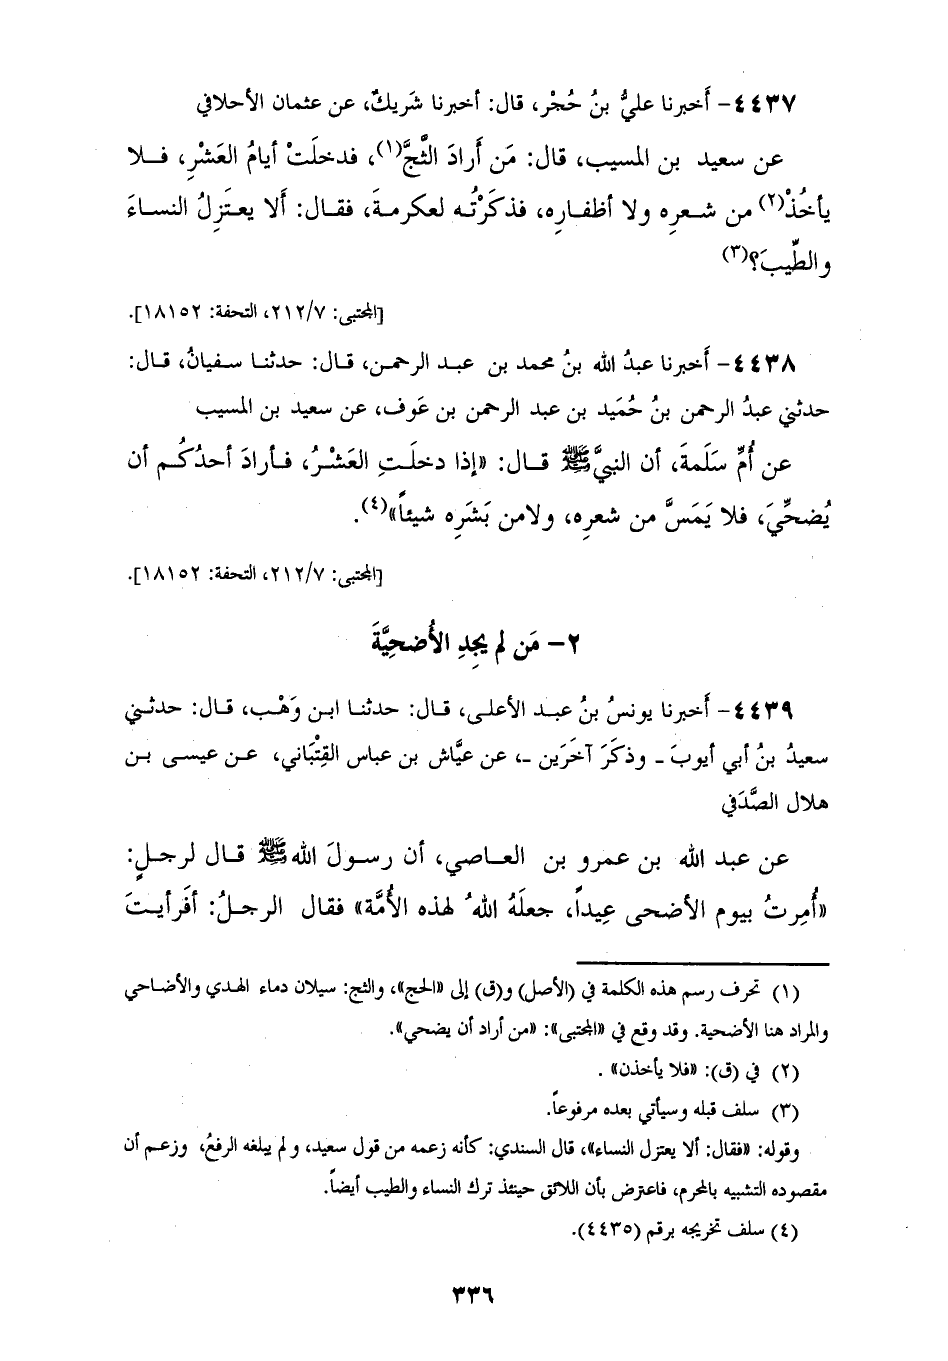 ٤٤٣٧- أَخبرنا عليُّ بنُ حُجْر، قال: أخبرنا شَريكٌ، عن عثمان الأحلافي
عن سعيد بن المسيب، قال: مَن أَرادَ الثَّجَّ(١)، فدخلَتْ أيامُ العَشْرِ، فـلا
يأخُذْ(٢) من شـعرِه ولا أظفـارِه، فذكَرْتُـه لعكرمـةَ، فقـال: أَلا يعـتَزِلُ النسـاءَ
والطِّيبَ؟(٣)
[المجتبى: ٢١٢/٧، التحفة: ١٨١٥٢].
٤٤٣٨- أَخبرنـا عبدُ الله بنُ محمد بن عبـد الرحمـن، قـال: حدثنـا سـفيانُ، قـال:
حدثني عبدُ الرحمن بنُ حُمَيد بن عبد الرحمن بن عَوف، عن سعيد بن المسيب
عن أُمِّ سَلَمةَ، أن النبيَّ ﷺ قـال: «إذا دخلَـتِ العَشْـرُ، فـأرادَ أحدُكُـم أن
يُضحِّيَ، فلا يَمَسَّ من شعرِه، ولامن بَشَرِه شيئاً»(٤).
[المجتبى: ٢١٢/٧، التحفة: ١٨١٥٢].
٢- مَن لم يجِدِ الأُضحيَّةَ
٤٤٣٩- أَخبرنا يونسُ بنُ عبـد الأعلـى، قـال: حدثنـا ابـن وَهْـب، قـال: حدثـني
سعيدُ بنُ أبي أيوبَ ـ وذكَرَ آخَرَين ـ، عن عيَّاش بن عباس القِتْبَاني، عـن عيسـى بـن
هلال الصَّدَفي
عن عبد الله بن عمرو بن العـاصي، أن رسـولَ الله ﷺ قـال لرجـلٍ:
«أُمِرتُ بيوم الأضحى عِيداً، جعلَهُ اللهُ لهذه الأُمَّة» فقال الرجلُ: أفَرأيـتَ
(١) تحرف رسم هذه الكلمة في (الأصل) و(ق) إلى «الحج»، والثج: سيلان دماء الهـدي والأضـاحي
والمراد هنا الأضحية. وقد وقع في «المجتبى»: «من أراد أن يضحي».
(٢) في (ق): «فلا يأخذن» .
(٣) سلف قبله وسيأتي بعده مرفوعاً.
وقوله: «فقال: ألا يعتزل النساء»، قال السندي: كأنه زعمه من قول سعيد، ولم يبلغه الرفعُ، وزعـم أن
مقصوده التشبيه بالمحرم، فاعترض بأن اللائق حينئذ ترك النساء والطيب أيضاً.
(٤) سلف تخريجه برقم (٤٤٣٥).
٣٣٦